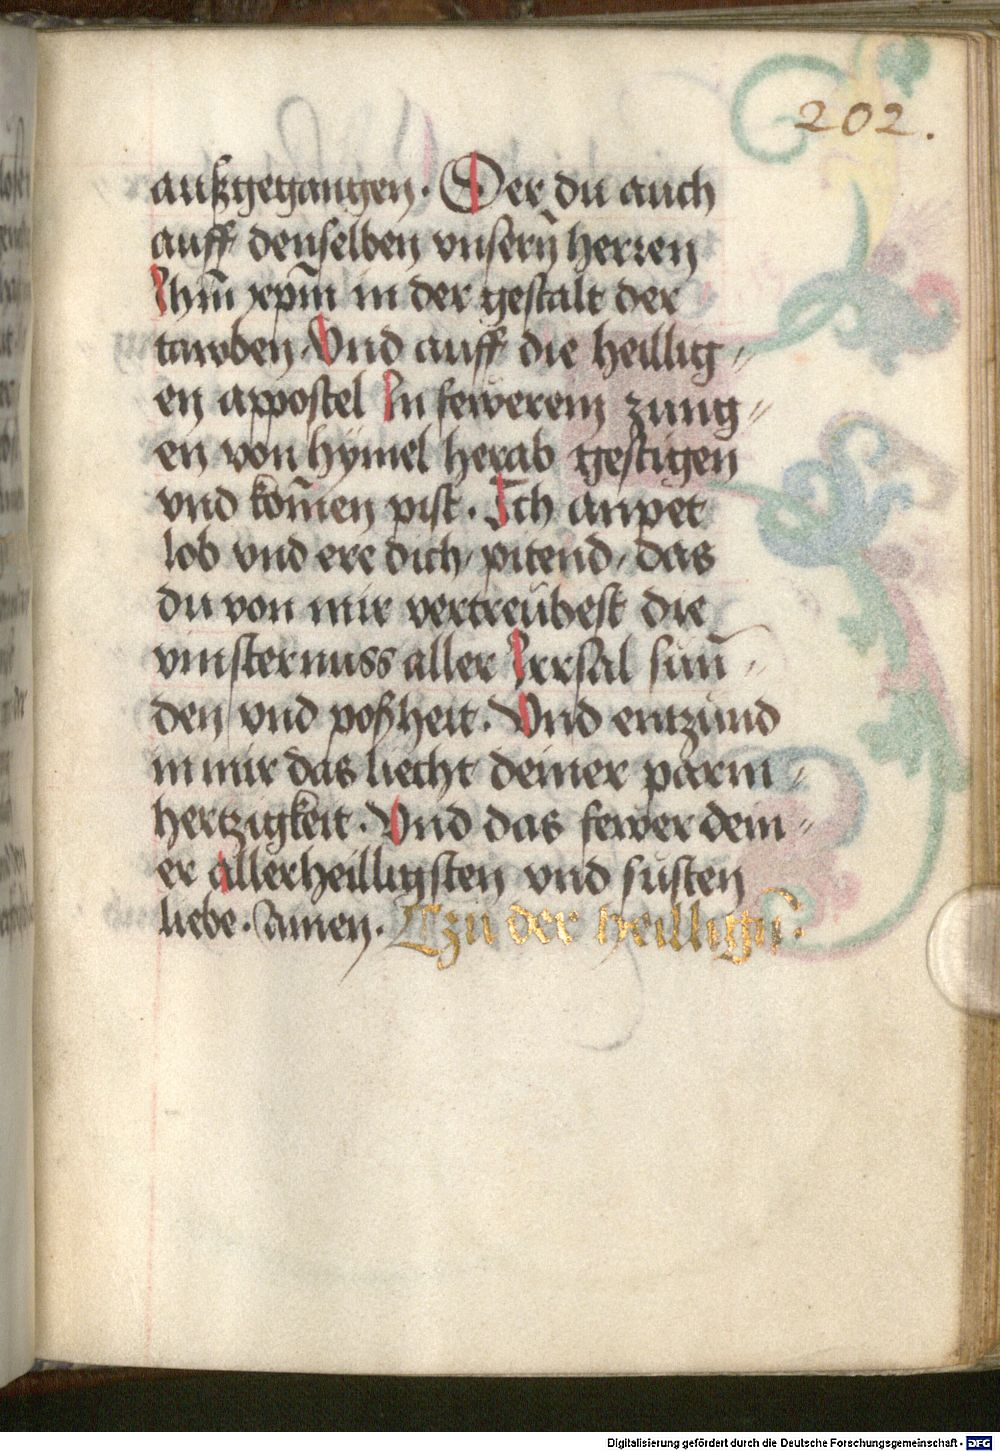 202.
außgegangen. Der du auch
auff denselben vnsern̄ herren
Ihm̄ xpm̄ in der gestalt der
tawben. Vnd auff die heillig⸗
en appostel In fewerem zung⸗
en von hÿmel herab gestigen
vnd kom̄en pist. Ich anpet
lob vnd ere dich, pitend, das
du von mir vertreübest die
vinsternuss aller Irrsal sün⸗
den vnd poßheit. Vnd entzünd
in mir das liecht deiner parm⸗
hertzigkeit. Vnd das fewer dein⸗
er allerheilligsten vnd süsten
liebe. Amen. Tzu der heillign̄.
Digitalisierung gefördert durch die Deutsche Forschungsgemeinschaft - DFG